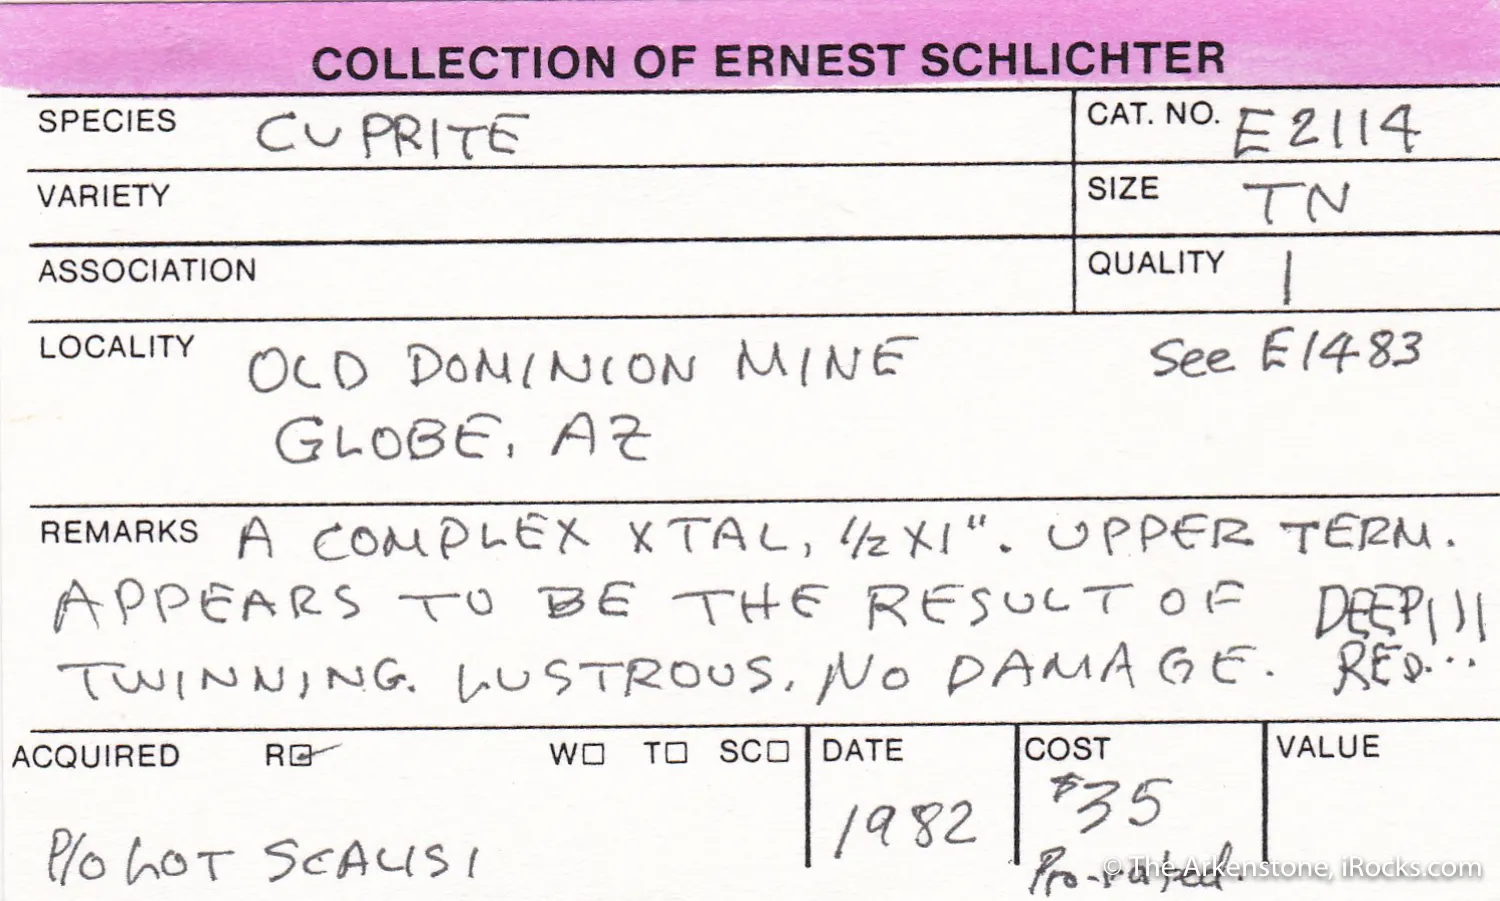 COLLECTION OF ERNEST SCHLICHTER
SPECIES CUPRITE CAT. NO. E2114
VARIETY SIZE TN
ASSOCIATION QUALITY 1
LOCALITY OLD DOMINION MINE See E1483
GLOBE, AZ
REMARKS A COMPLEX XTAL, 1/2 X 1". UPPER TERM.
APPEARS TO BE THE RESULT OF DEEP!!!
TWINNING. LUSTROUS. NO DAMAGE. RED...
ACQUIRED R W T SC DATE COST VALUE
P/O LOT SCALISI 1982 $35
Pro-rated.
© The Arkenstone, iRocks.com